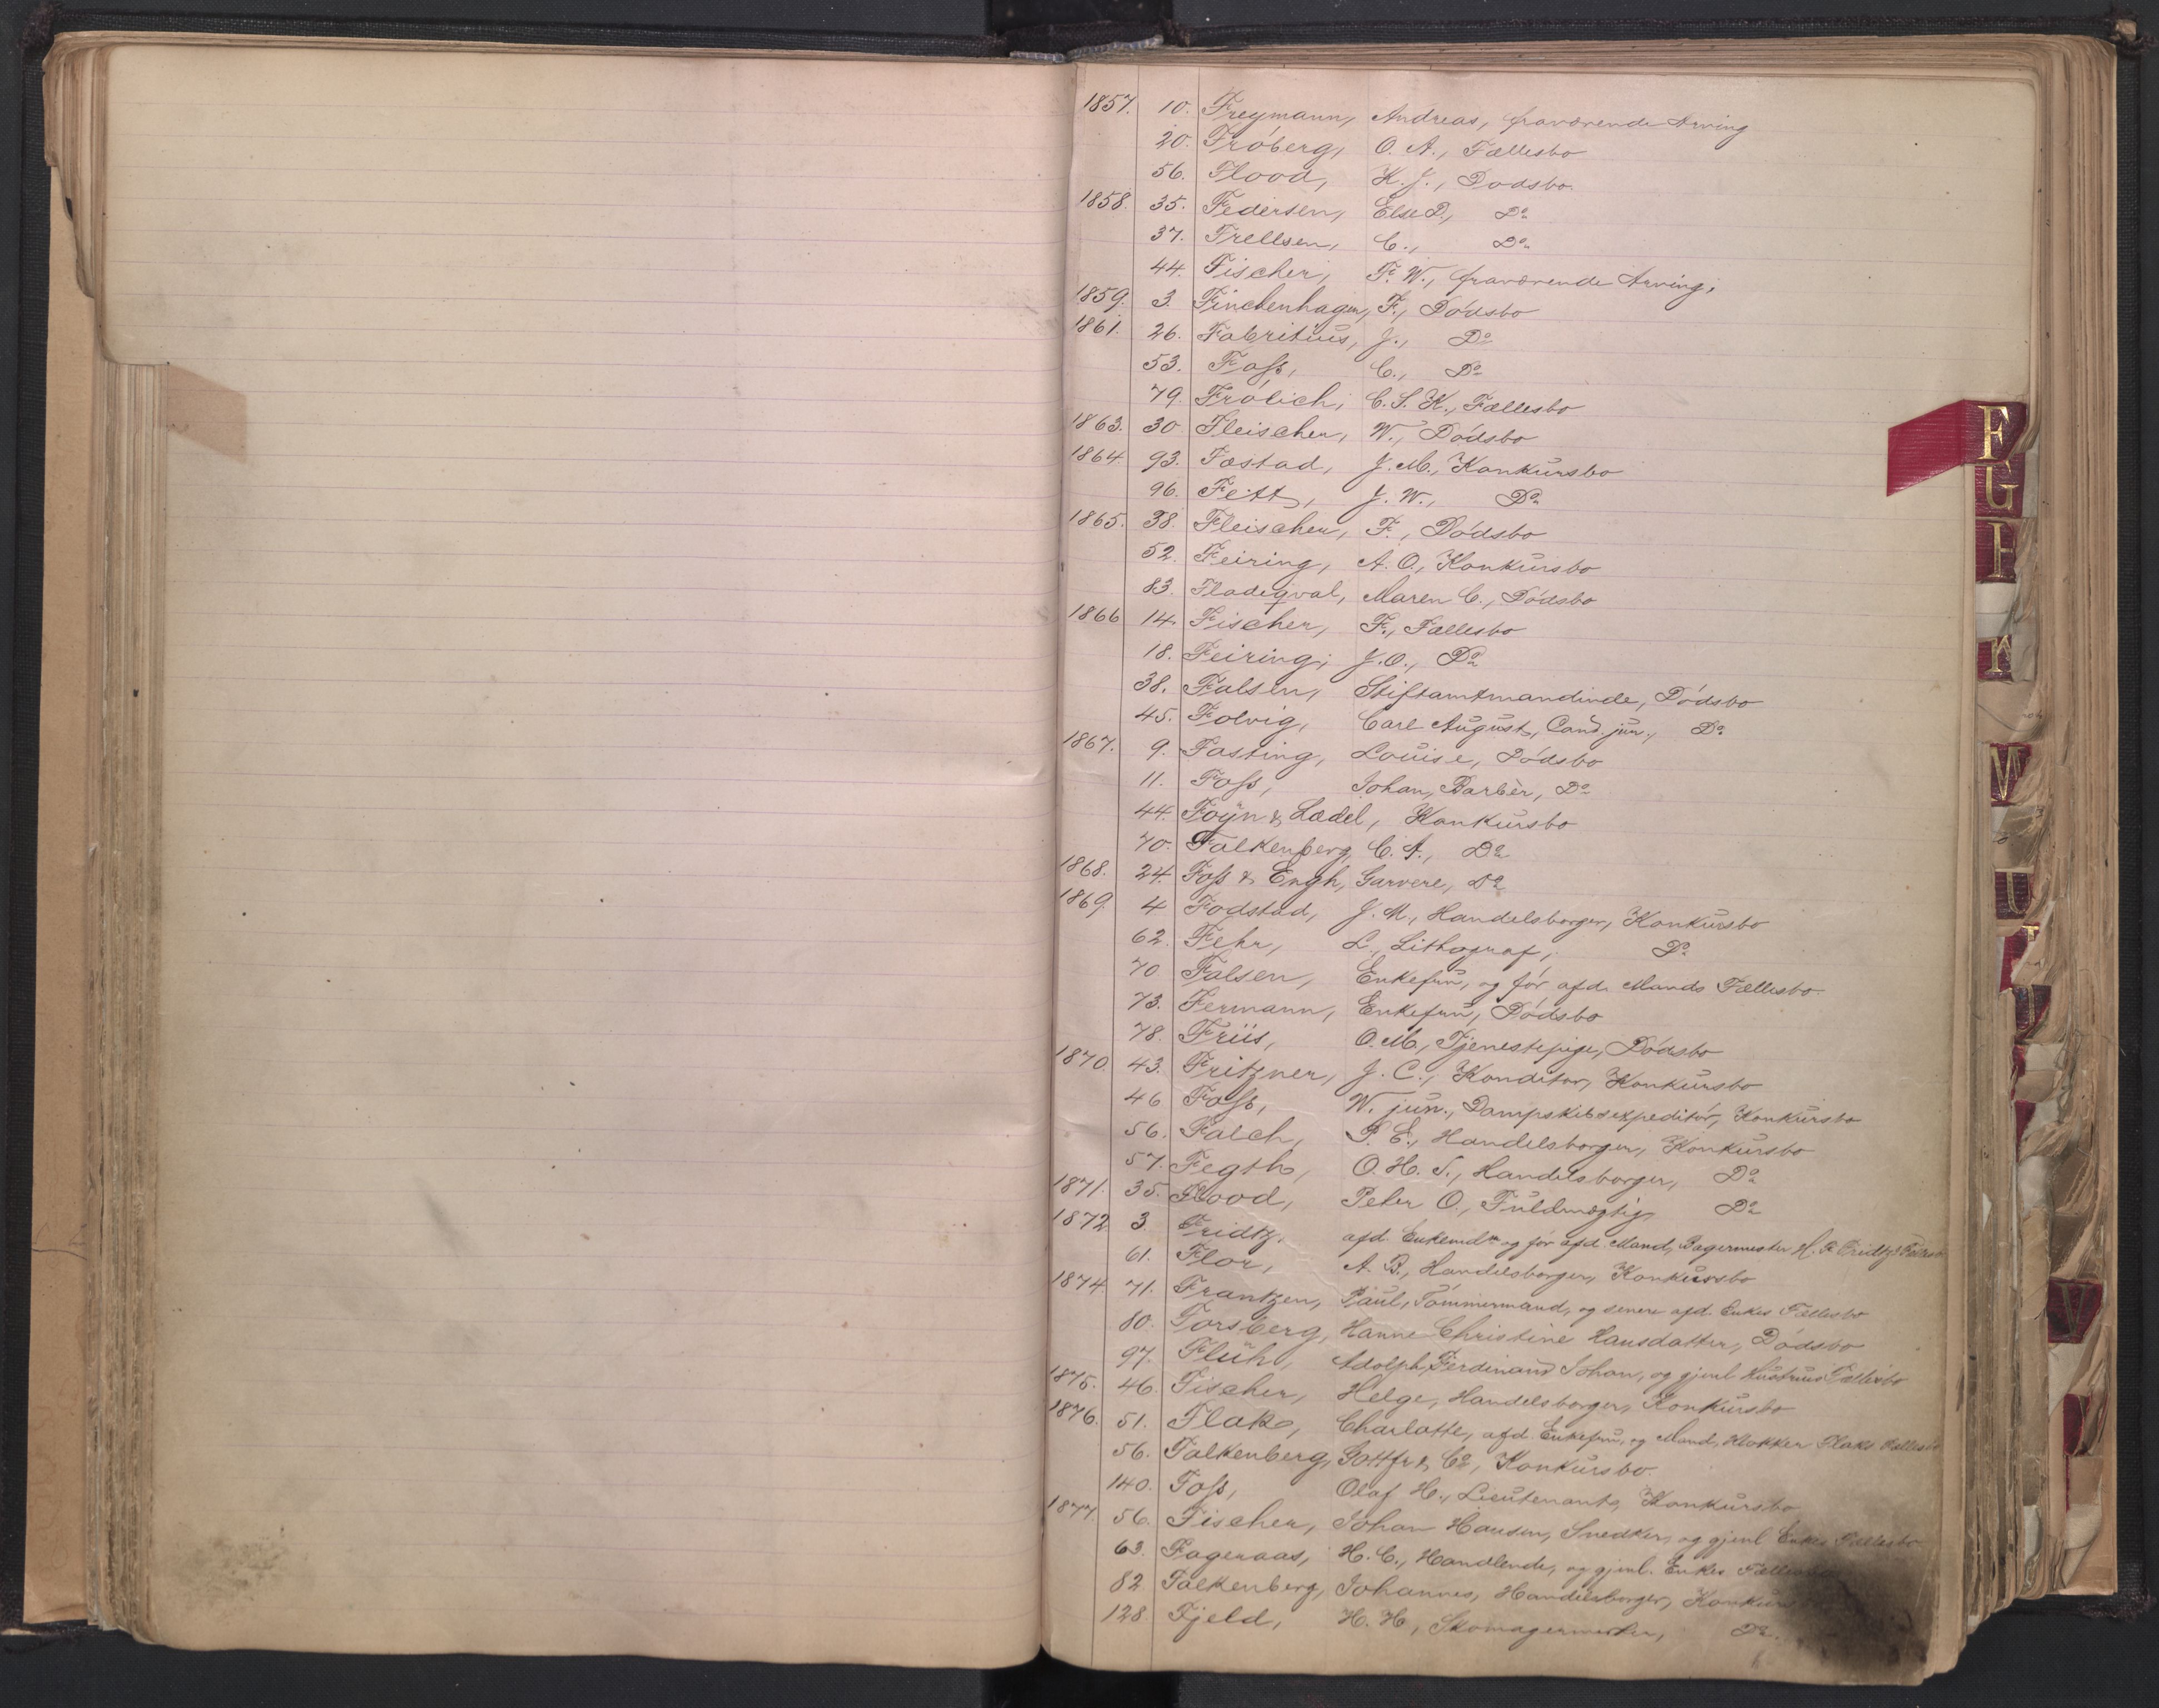 1857. 10. Freymann, Andreas, fraværende Arving
20. Fróberg, O. A., Fællesbo
56. Flood, K. J., Dodsbo.
1858. 35. Federsen, Else D., Do
37. Frellsen, C., Do
44. Fischer, F. W., fraværende Arving,
1859. 3. Finckenhagen, F., Dódsbo
1861. 26. Fabritius, J., Do
53. Foss, C., Do
79. Frólich, C. S. K., Fællesbo
1863. 30 Fleischer, W., Dódsbo
1864 93. Fostad, J. M., Konkursbo
96. Feitt, J. W., Do
1865. 38. Fleischer, F., Dódsbo
52. Feiring, A. O., Konkursbo
83. Fladeqval, Maren C., Dódsbo
1866 14. Fischer, F., Fællesbo
18. Feiring, J. O., Do
38. Falsen, Stiftamtmandinde, Dódsbo
45. Folvig, Carl August, Cand. jur., Do
1867. 9. Fasting, Louise, Dódsbo
11. Foss, Johan, Barbèr, Do
44. Foÿn & Lædel, Konkursbo
70. Falkenberg, C. A., Do
1868. 24. Foss & Engh, Garvere, Do
1869. 4 Fodstad, J. M., Handelsborger, Konkursbo
62. Fehr, L., Lithograf, Do
70 Falsen, Enkefru, og fór afd. Mands Fællesbo.
73. Fermann, Enkefru, Dódsbo
78. Friis, O. M., Tjenestepige, Dódsbo
1870. 43. Fritzner, J. C., Konditor, Konkursbo
46 Foss, W. jun., Dampskibsexpeditór, Konkursbo
56. Falch, P. E., Handelsborger, Konkursbo
57. Fegth, O. H. S., Handelsborger, Do
1871. 35. Flood, Peter O., Fuldmægtig Do
1872 3. Fridtz, afd. Enkemd og fór afd. Mand, Bagermester H. F. Fridtz's Fællesbo
61. Flor, A. B., Handelsborger, Konkursbo
1874 71. Frantzen, Paul, Tómmermand, og senere afd. Enkes Fællesbo
80. Forsberg, Hanne Christine Hansdatter, Dódsbo
97. Flüh, Adolph Ferdinand Johan, og gjenl. Hustrus Fællesbo
1875. 46. Fischer, Helge, Handelsborger, Konkursbo
1876. 51. Flak, Charlotte, afd. Enkefru, og Mand, Klokker Flaks Fællesbo
56. Falkenberg, Gottfr. & Co, Konkursbo.
140. Foss, Olaf H., Lieutenant, Konkursbo
1877. 56. Fischer, Johan Hansen, Snedker, og gjenl. Enkes Fællesbo
63. Fageraas, H. C., Handlende, og gjenl. Enkes Fællesbo
82. Falkenberg, Johannes, Handelsborger, Konkursbo
128. Fjeld, H. H., Skomagermester, Do.
F
G
I
V